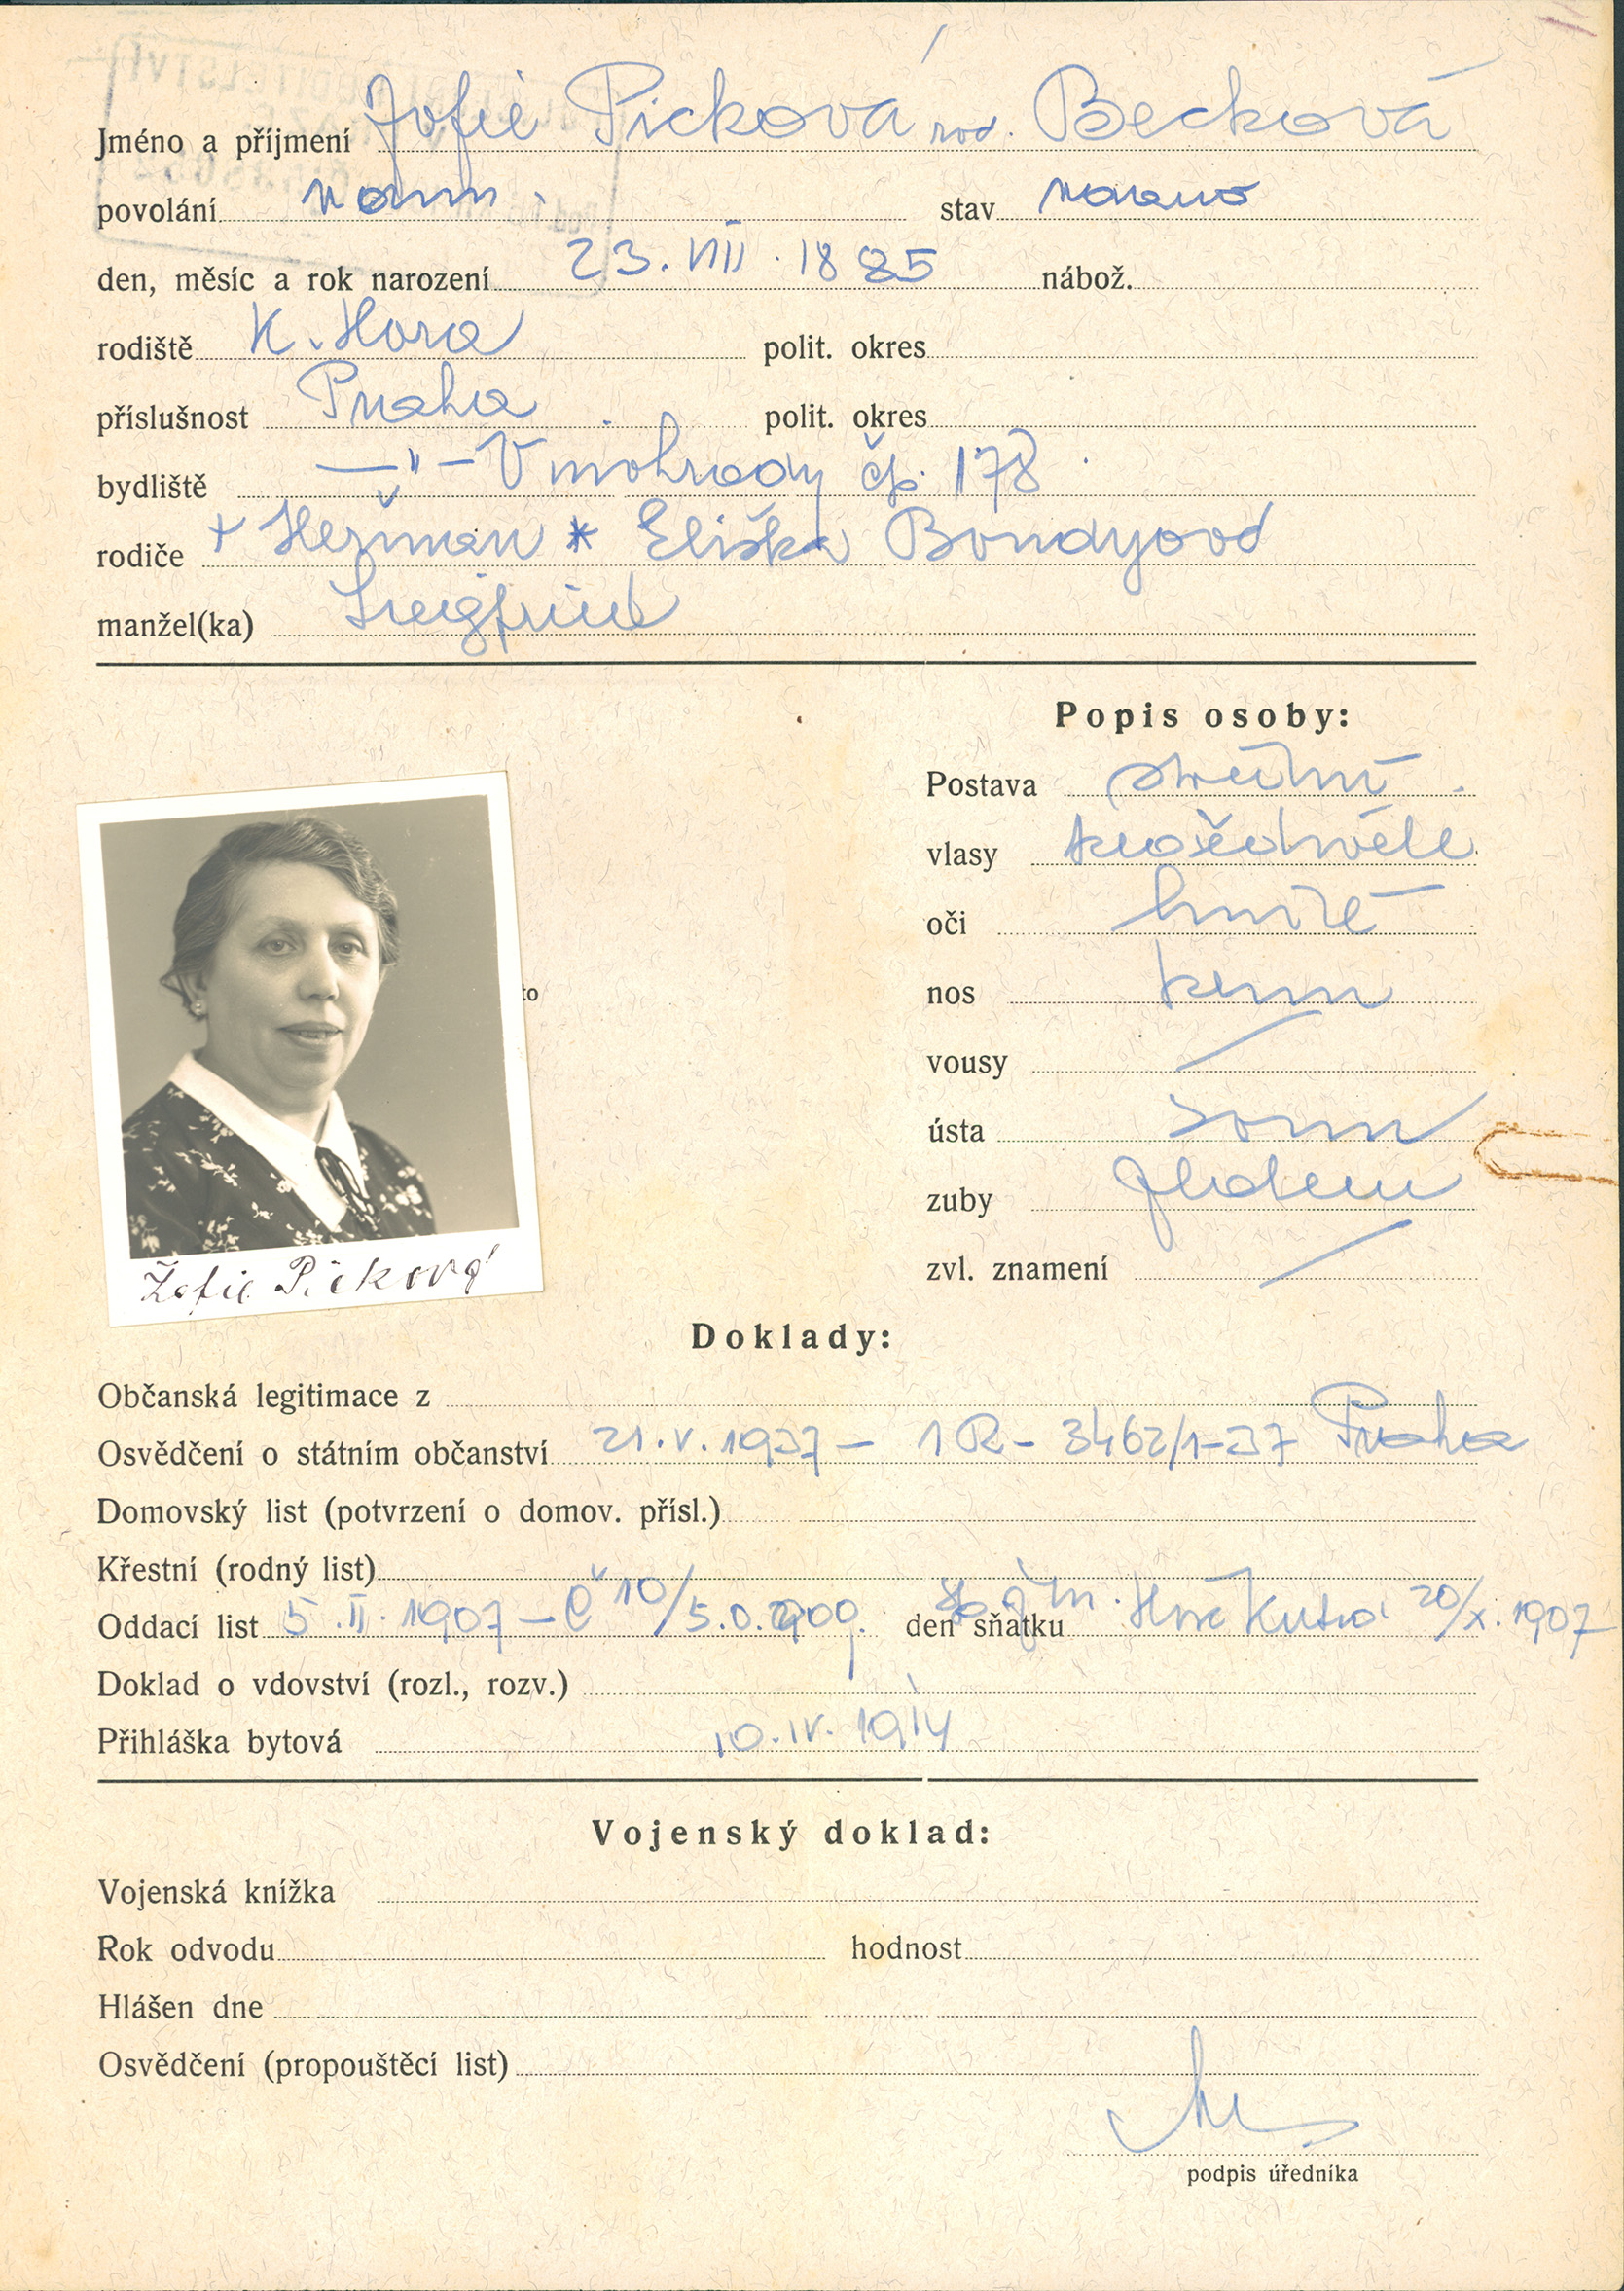 Jméno a příjmení Žofie Picková roz. Becková
povolání stav
den, měsíc a rok narození 23. VIII. 1885 nábož.
rodiště K. Hora polit. okres
příslušnost Praha polit. okres
bydliště —"— Vinohrady čp. 178
rodiče + Heřman * Eliška Bondyová
manžel(ka) Siegfried
Popis osoby:
Postava
vlasy
oči hnědé
nos
vousy
ústa
zuby
zvl. znamení
to
Žofie Picková
Doklady:
Občanská legitimace z
Osvědčení o státním občanství 21.V.1937 — 1R - 3462/1-37 Praha
Domovský list (potvrzení o domov. přísl.)
Křestní (rodný list)
Oddací list 5.II.1907 — č 10/5. den sňatku Hora Kutná 20/X.1907
Doklad o vdovství (rozl., rozv.)
Přihláška bytová 10.IV.1914
Vojenský doklad:
Vojenská knížka
Rok odvodu hodnost
Hlášen dne
Osvědčení (propouštěcí list)
podpis úředníka